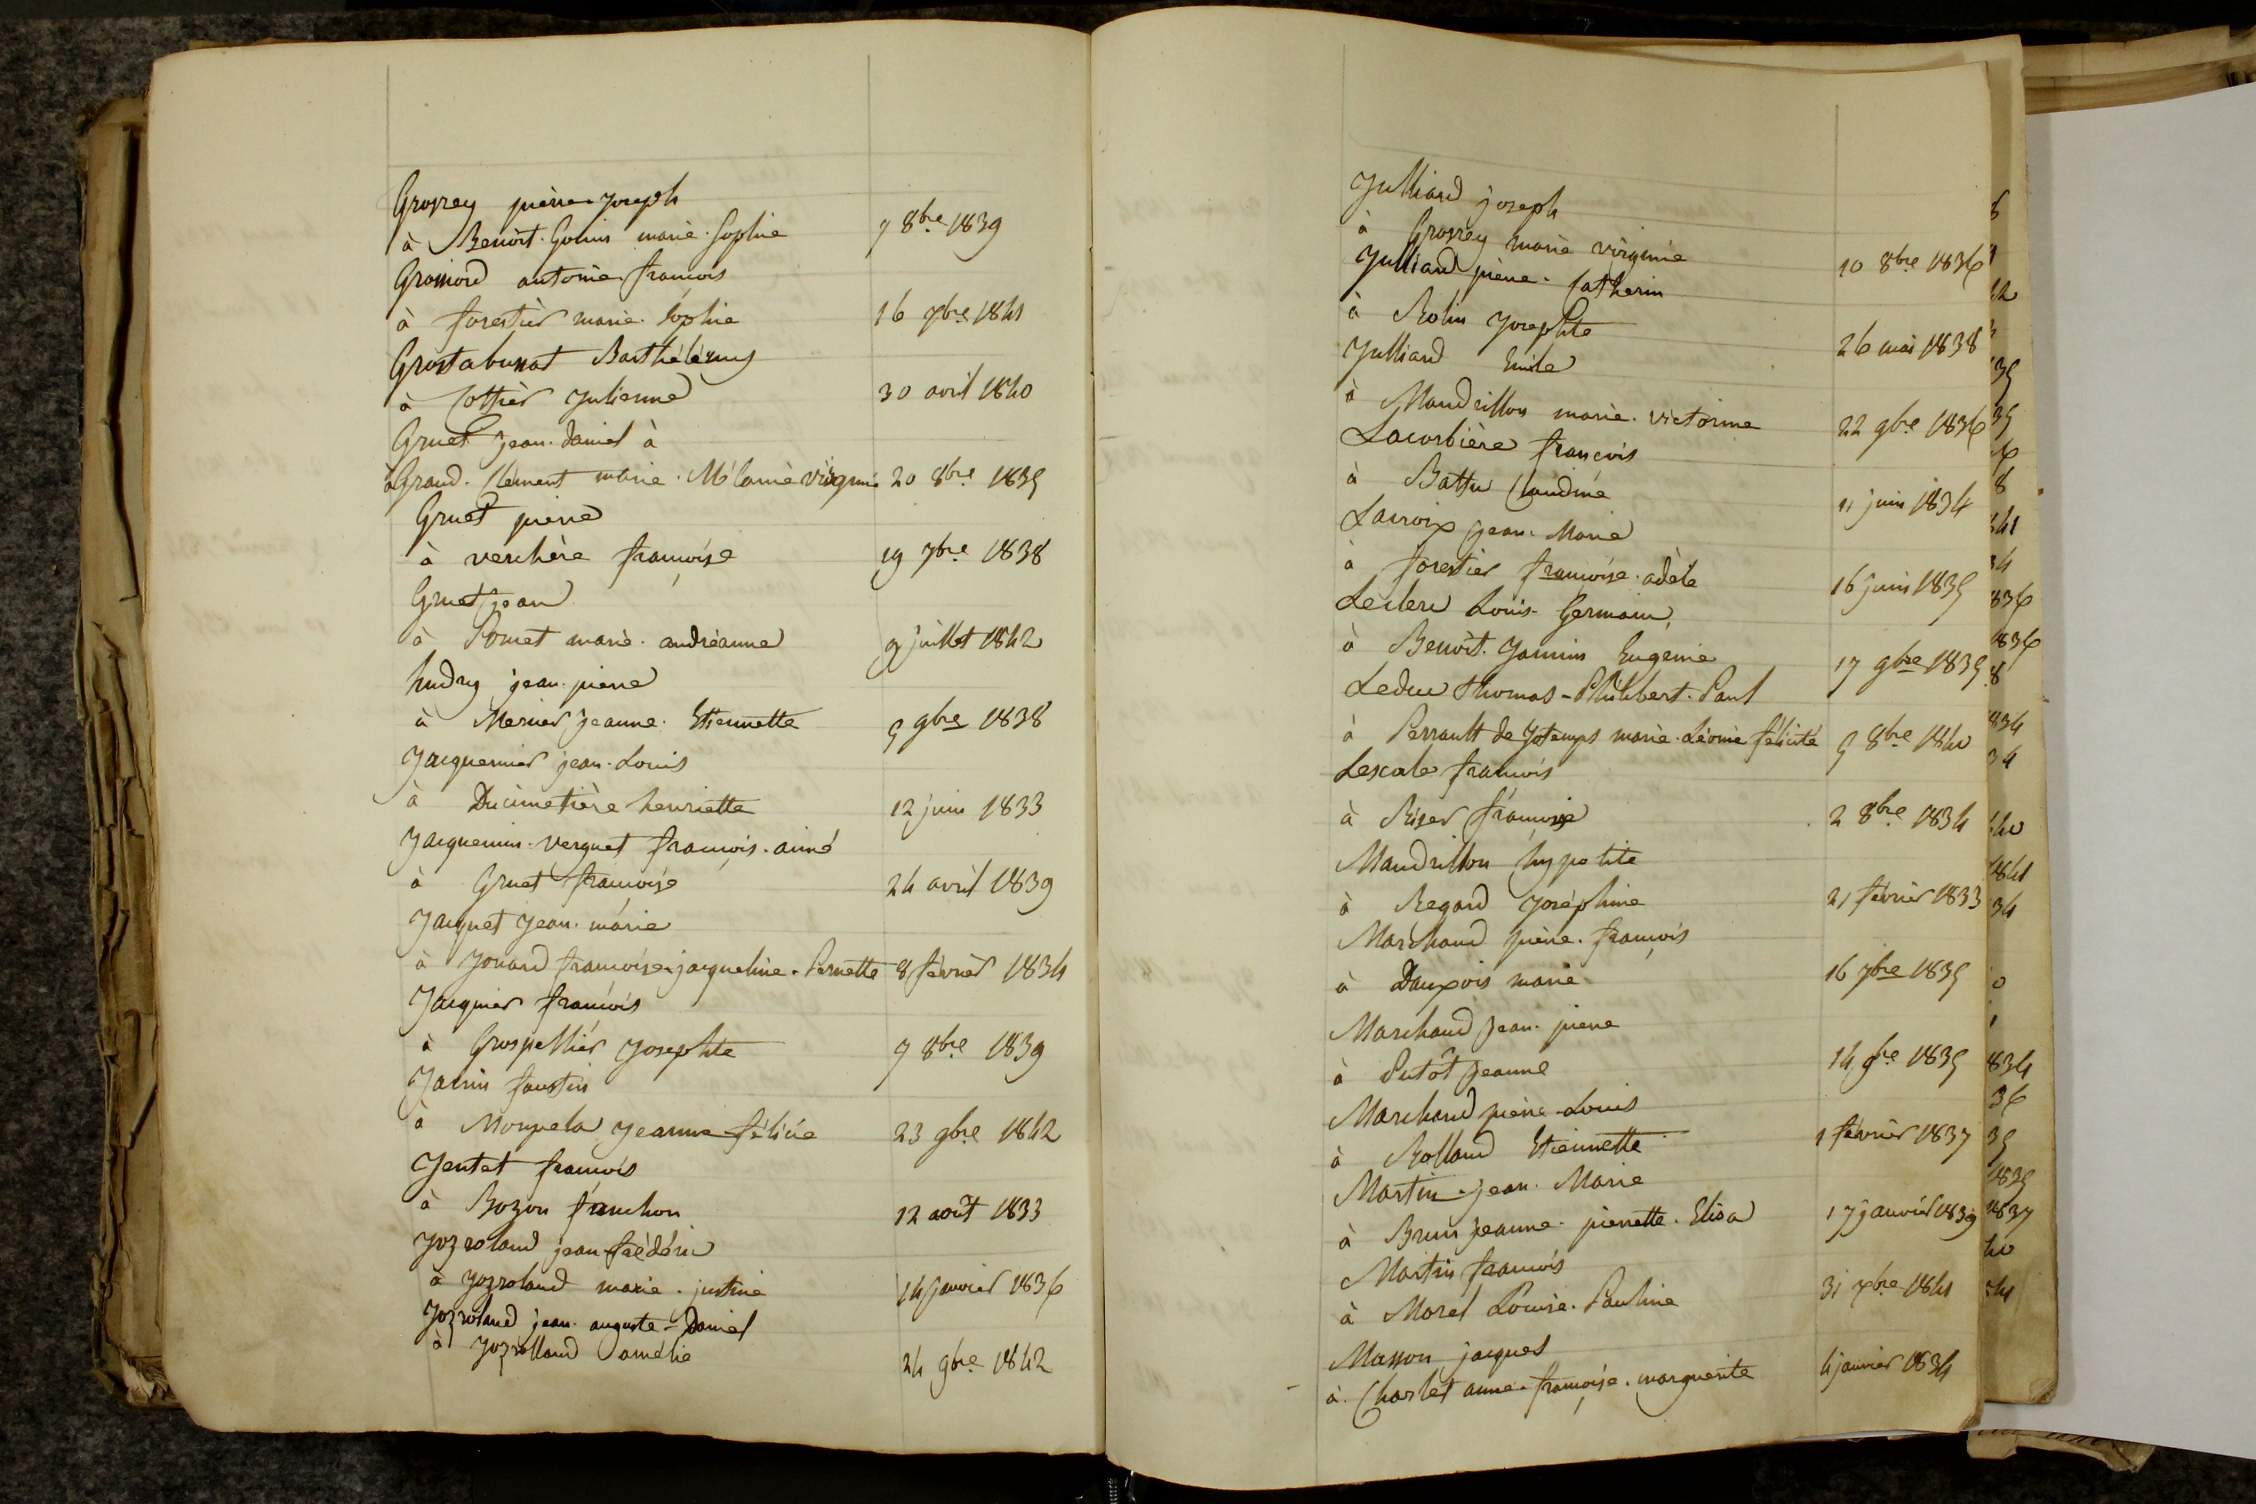 Grosrey pierre-joseph
à Benoit-Gonin marie-Sophie 7 8bre 1839
antoine-francois
à forestier marie-Sophie 16 xbre 1841
Grostabussat Barthélémy
à Cottier Julienne 30 avril 1840
Gruet Jean-daniel à
à Grand-Clément marie-Mélanie virginie 20 8bre 1835
Gruet pierre
à verchère françoise 19 7bre 1838
Gruet jean
à Pomet marie-andréanne 9 juillet 1842
hudry jean-pierre
à Mercier jeanne-Etiennette 5 9bre 1838
Jacquemier jean-Louis
à Ducimetière henriette 12 juin 1833
Jacquemin-verguet françois-aimé
à Gruet françoise 24 avril 1839
Jacquet Jean-marie
à Jouard francoise-jacqueline-Pernette 8 février 1834
Jacquier francois
à Grospellier Josephte 7 8bre 1839
Janin faustin
à Monpela Jeanne-félicie 23 9bre 1842
Jentet francois
à Bozon fanchon 12 août 1833
Jozroland jean-frédéric
à Jozroland marie-justine 14 janvier 1836
Jozroland jean-auguste-Daniel
à Jozrolland amélie 24 9bre 1842
Julliard joseph
à Grosrey marie virginie 10 8bre 1836
Julliard pierre-Catherin
à Rolin Josephte 26 mai 1838
Julliard Emile
à Mandrillon marie-victorine 22 9bre 1836
Lacorbière francois
à Battu Claudine 11 juin 1834
Lacroix jean-Marie
à forestier françoise-adèle 16 juin 1835
Leclerc Louis-Germain
à Benoit-Jannin Eugenie 17 9bre 1835
Leduc Thomas-Philibert-Paul
à Perrault de Jotemps marie-Léonie félicité 5 8bre 1840
Lescale francois
à Riser françoise 2 8bre 1834
Mandrillon hypolite
à Regard Joséphine 21 février 1833
Marchand pierre-françois
à Dauxois marie 16 7bre 1835
Marchand Jean-pierre
à Putôt Jeanne 14 bre 1835
Marchand pierre-Louis
à Rolland Etiennette 1 février 1837
Martin-jean-Marie
à Brun jeanne-pierrette-Elisa 17 janvier 1839
Martin francois
à Morel Louise-Pauline 31 xbre 1841
Masson jacques
à Charlet anne-françoise-marguerite 4 janvier 1834
35
35
8
34
836
1836
8
834
34
1841
34
834
36
35
1835
1837